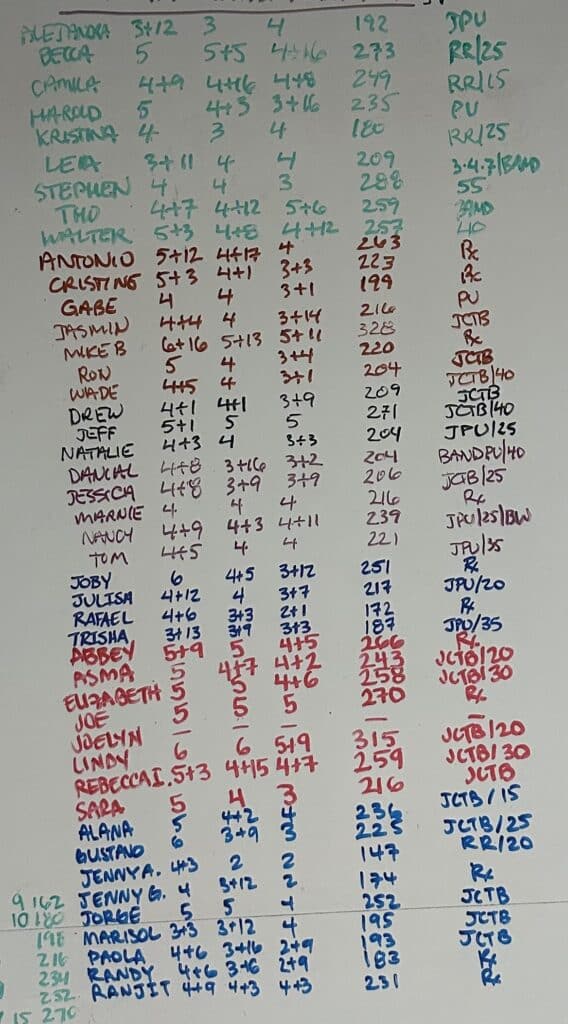 ALEJANDRA 3+12 3 4 192 JPU
BECCA 5 5+5 4+16 273 RR/25
CAMILA 4+9 4+16 4+8 249 RR/15
HAROLD 5 4+3 3+16 235 PU
KRISTINA 4 3 4 180 RR/25
LEIA 3+11 4 4 209 3.4.7/BAND
STEPHEN 4 4 3 288 55
THO 4+7 4+12 5+6 259 BAND
WALTER 5+3 4+8 4+12 257 40
ANTONIO 5+12 4+17 4 263 Rx
CRISTING 5+3 4+1 3+3 223 Rx
GABE 4 4 3+1 199 PU
JASMIN 4+4 4 3+14 216 JCTB
MIKE B 6+16 5+13 5+11 328 Rx
RON 5 4 3+4 220 JCTB
WADE 4+5 4 3+1 204 JCTB/40
DREW 4+1 4+1 3+9 209 JCTB
JEFF 5+1 5 5 271 JCTB/40
NATALIE 4+3 4 3+3 204 JPU/25
DANIAL 4+8 3+16 3+2 204 BANDPU/40
JESSICA 4+8 3+9 3+9 206 JCTB/25
MARNIE 4 4 4 216 Rx
NANCY 4+9 4+3 4+11 239 JPU/25/BW
TOM 4+5 4 4 221 JPU/35
JOBY 6 4+5 3+12 251 Rx
JULISA 4+12 4 3+7 217 JPU/20
RAFAEL 4+6 3+3 2+1 172 Rx
TRISHA 3+13 3+9 3+3 187 JPU/35
ABBEY 5+9 5 4+5 266 Rx
ASMA 5 4+7 4+2 243 JCTB/20
ELIZABETH 5 5 4+6 258 JCTB/30
JOE 5 5 5 270 Rx
JOELYN — — — — —
LINDY 6 6 5+9 315 JCTB/20
REBECCA I. 5+3 4+15 4+7 259 JCTB/30
SARA 5 4 3 216 JCTB
ALANA 5 4+2 4 236 JCTB/15
GUSTAVO 6 3+9 3 225 JCTB/25
JENNY A. 4+3 2 2 147 RR/20
JENNY G. 4 3+12 2 174 Rx
9 162 JORGE 5 5 4 252 JCTB
10 180 MARISOL 3+3 3+12 4 195 JCTB
198 PAOLA 4+6 3+16 2+9 193 JCTB
216 RANDY 4+6 3+6 2+9 183 Rx
234 RANJIT 4+9 4+3 4+3 231 Rx
252
15 270